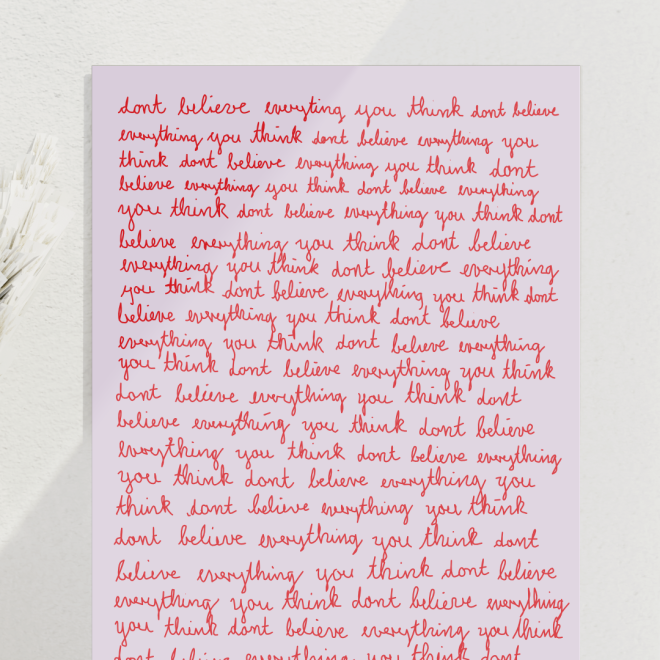 dont believe everyting you think dont believe
everything you think dont believe everything you
think dont believe everything you think dont
believe everything you think dont believe everything
you think dont believe everything you think dont
believe everything you think dont believe
everything you think dont believe everything
you think dont believe everything you think dont
believe everything you think dont believe
everything you think dont believe everything
you think dont believe everything you think
dont believe everything you think dont
believe everything you think dont believe
everything you think dont believe everything
you think dont believe everything you
think dont believe everything you think
dont believe everything you think dont
believe everything you think dont believe
everything you think dont believe everything
you think dont believe everything you think
dont believe everything you think dont